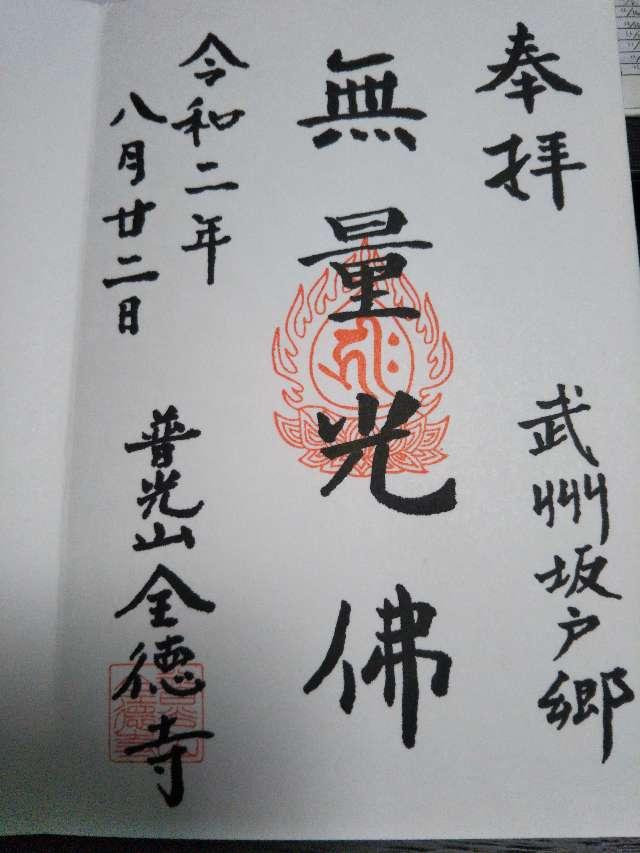 奉拝
武州坂戸郷
無量光佛
令和二年
八月廿二日
普光山全徳寺